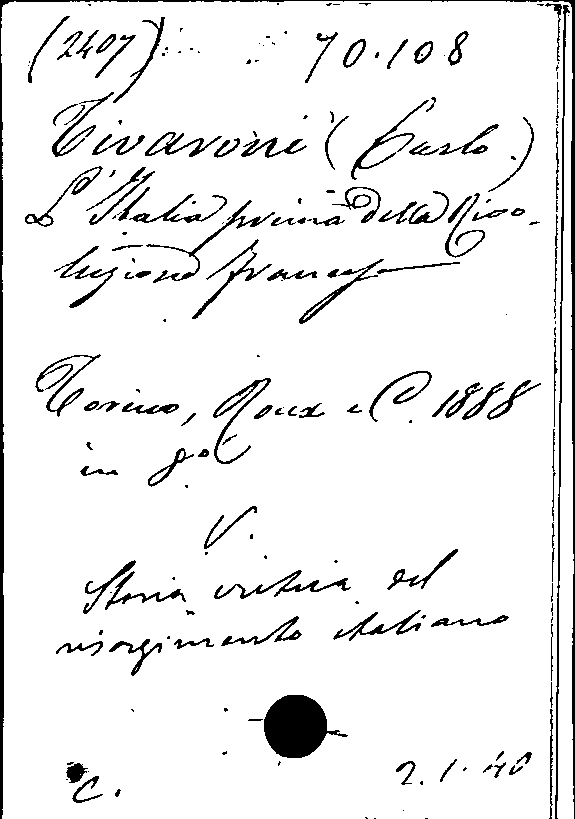 (2407) 70.108
Tivaroni (Carlo.)
L'Italia prima della Rivo-
luzione francese
Torino, Roux e C. 1888
in 8º
V.
Storia critica del
risorgimento italiano
C. 2.1.40